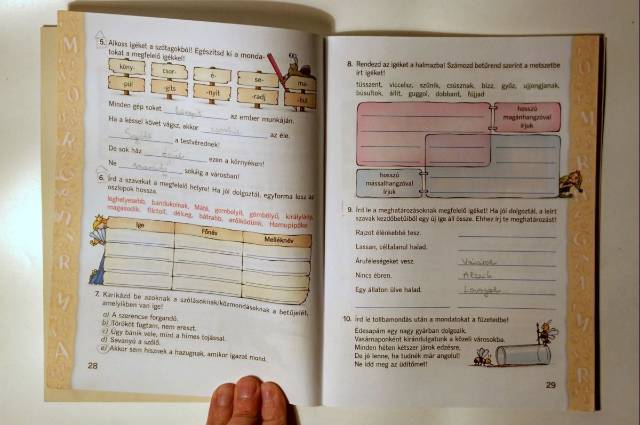 5. Alkoss igéket a szótagokból! Egészítsd ki a monda-
tokat a megfelelő igékkel!
köny- csor- é- se- ma-
púl -gíts -nyít -radj -hul
Minden gép sokat az ember munkáján.
Ha a késsel követ vágsz, akkor az éle.
a testvérednek!
De sok ház ezen a környéken!
Ne sokáig a városban!
6. Írd a szavakat a megfelelő helyre! Ha jól dolgoztál, egyforma lesz az
oszlopok hossza.
leghelyesebb, bandukolnak, Máté, gombolyít, gömbölyű, királylány,
magasodik, füstöl, délceg, bátrabb, erőlködünk, Hamupipőke
Ige Főnév Melléknév
7. Karikázd be azoknak a szólásoknak/közmondásoknak a betűjelét,
amelyikben van ige!
a) A szerencse forgandó.
b) Törököt fogtam, nem ereszt.
c) Úgy bánik vele, mint a hímes tojással.
d) Savanyú a szőlő.
e) Akkor sem hisznek a hazugnak, amikor igazat mond.
28
8. Rendezd az igéket a halmazba! Számozd betűrend szerint a metszetbe
írt igéket!
tüsszent, viccelsz, szűnik, csúsznak, bízz, győz, ujjonganak,
búsultok, állít, guggol, dobbant, fújjad
hosszú
magánhangzóval
írjuk
hosszú
mássalhangzóval
írjuk
9. Írd le a meghatározásoknak megfelelő igéket! Ha jól dolgoztál, a leírt
szavak kezdőbetűiből egy új ige áll össze. Ehhez írj te meghatározást!
Rajzot élénkebbé tesz.
Lassan, céltalanul halad.
Áruféleségeket vesz. Vásárol
Nincs ébren. Alszik
Egy állaton ülve halad. Lovagol
10. Írd le tollbamondás után a mondatokat a füzetedbe!
Édesapám egy nagy gyárban dolgozik.
Vasárnaponként kirándulgatunk a közeli városokba.
Minden héten kétszer járok edzésre.
De jó lenne, ha tudnék már angolul!
Ne idd meg az üdítőmet!
29